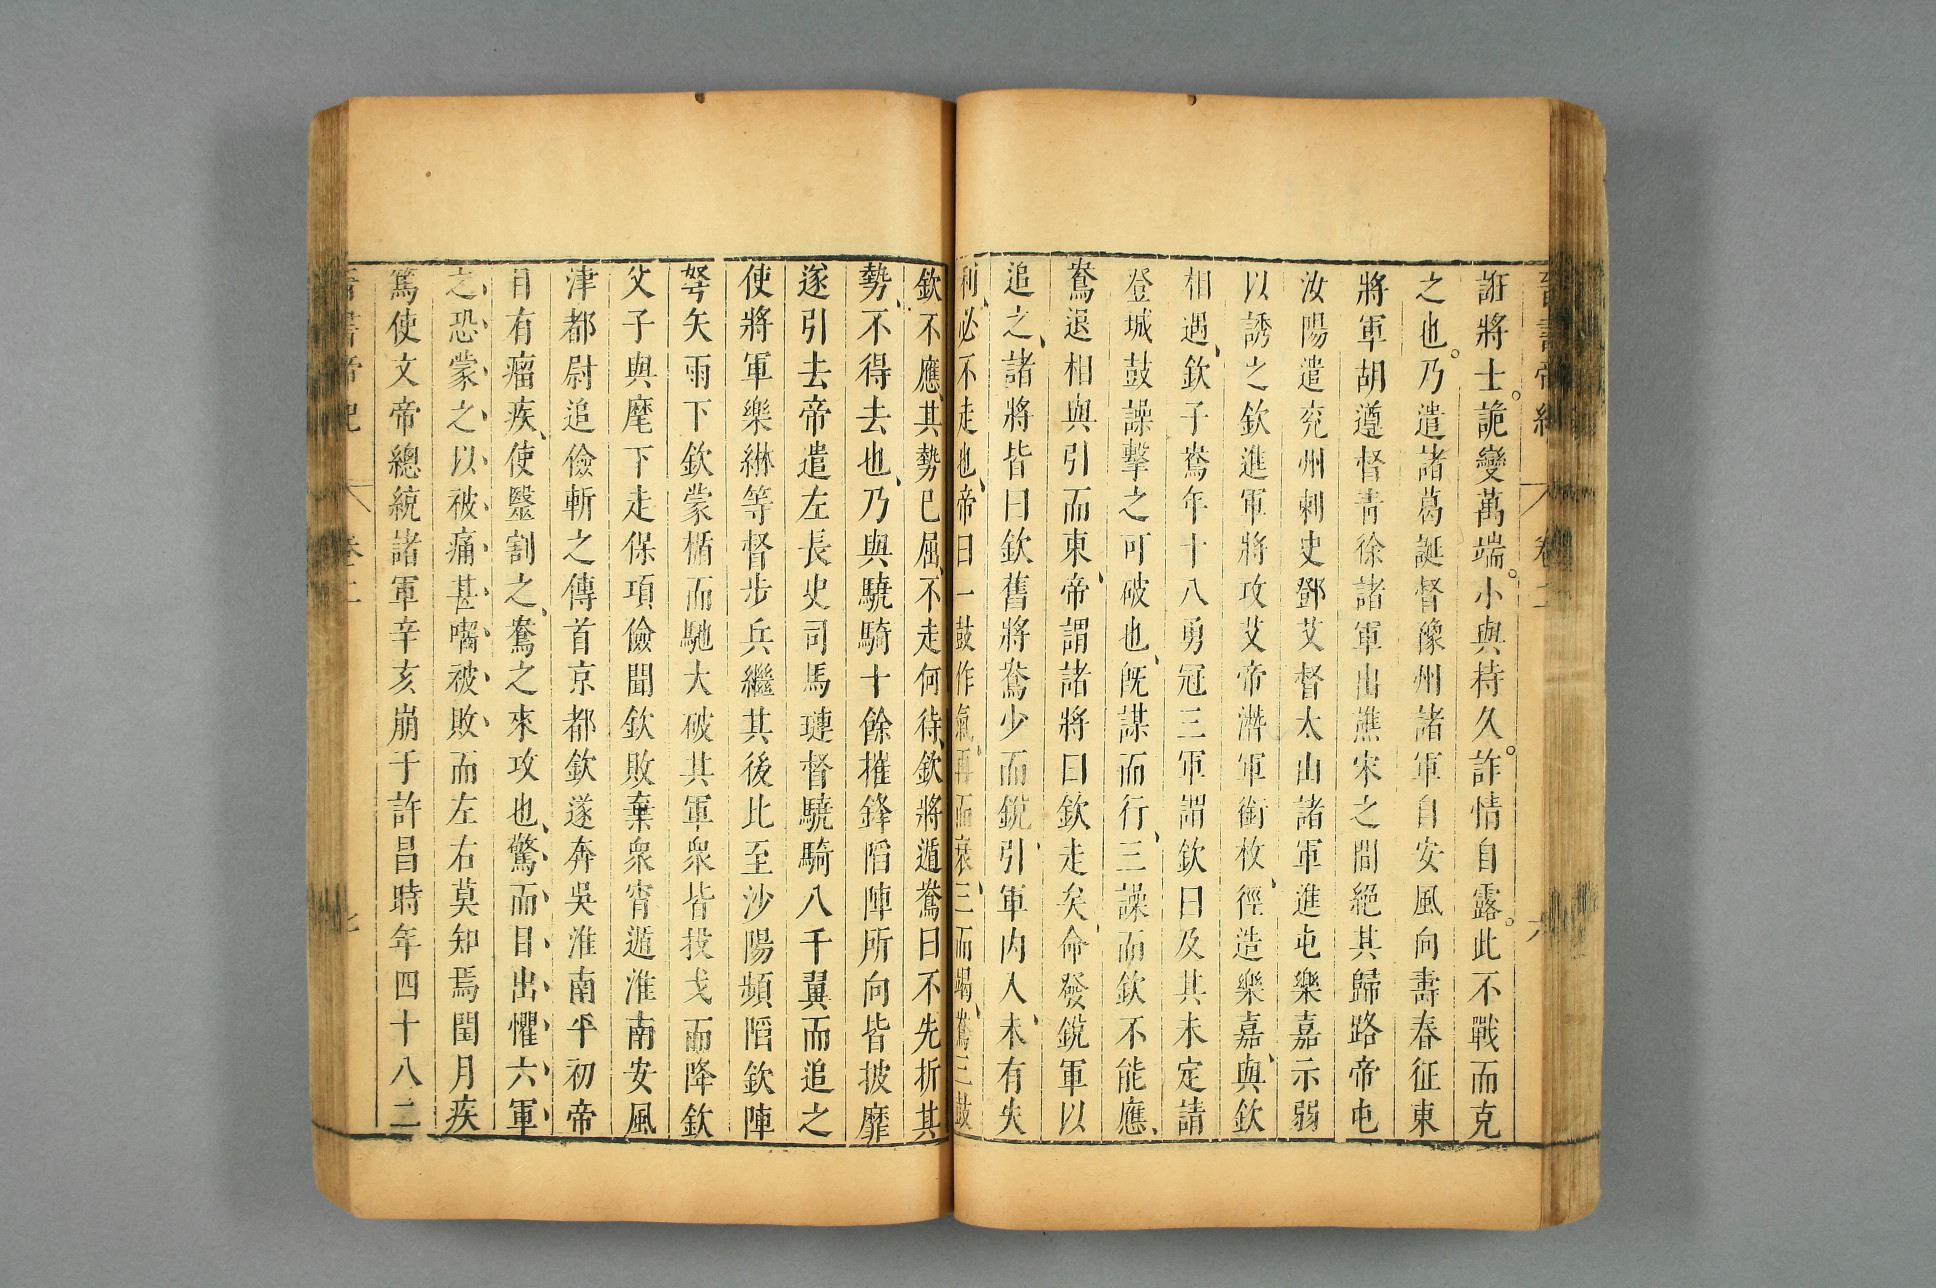 晉書帝紀 卷二 六
誑將士。詭變萬端。小與持久。詐情自露。此不戰而克
之也。乃遣諸葛誕督豫州諸軍自安風向壽春征東
將軍胡遵督靑徐諸軍出譙宋之間絕其歸路帝屯
汝陽遣兖州刺史鄧艾督太山諸軍進屯樂嘉示弱
以誘之欽進軍將攻艾帝潛軍銜枚、徑造樂嘉、與欽
相遇、欽子鴦年十八勇冠三軍謂欽曰及其未定請
登城鼓譟擊之可破也、旣謀而行、三譟而欽不能應、
鴦退相與引而東、帝謂諸將曰欽走矣、命發銳軍以
追之、諸將皆曰欽舊將鴦少而銳、引軍內入、未有失
利、必不走也、帝曰一鼓作氣、再而衰、三而竭、鴦三鼓
欽不應、其勢已屈、不走何待、欽將遁鴦曰不先折其
勢、不得去也、乃與驍騎十餘摧鋒陷陣所向皆披靡
遂引去帝遣左長史司馬璉督驍騎八千翼而追之
使將軍樂綝等督步兵繼其後比至沙陽頻陷欽陣
弩矢雨下欽蒙楯而馳大破其軍衆皆投戈而降欽
父子與麾下走保項儉聞欽敗棄衆宵遁淮南安風
津都尉追儉斬之傳首京都欽遂奔吳淮南平初帝
目有瘤疾、使毉割之、鴦之來攻也、驚而目出、懼六軍
之恐、蒙之以被、痛甚嚙被敗、而左右莫知焉閏月疾
篤使文帝總統諸軍辛亥崩于許昌時年四十八二
晉書帝紀 卷二 七